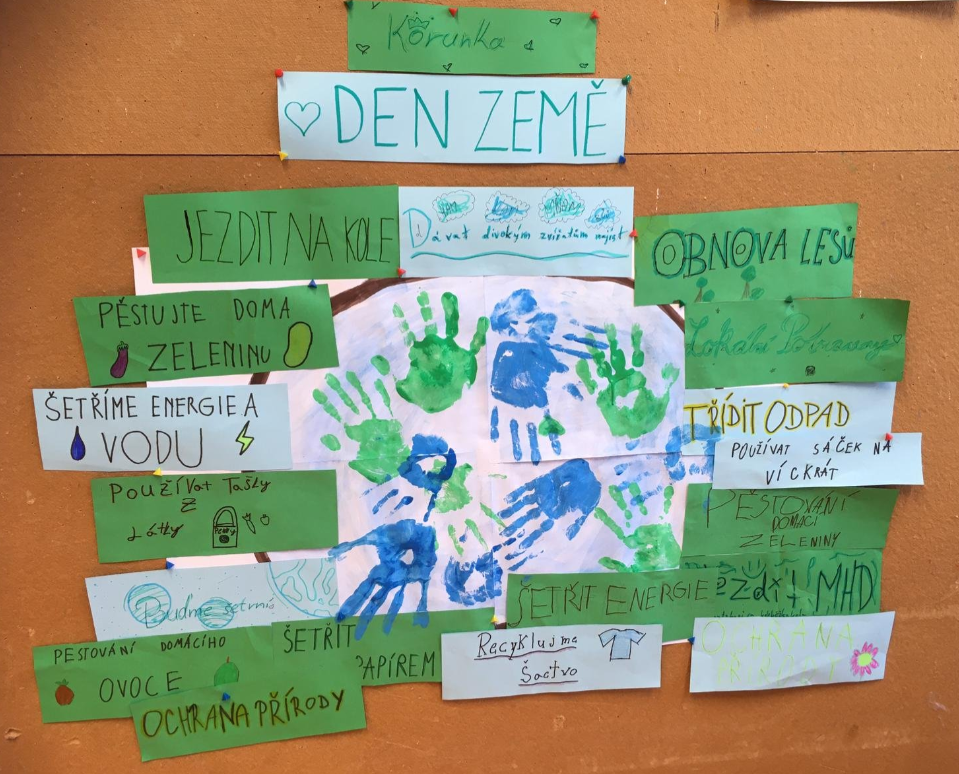 Korunka
DEN ZEMĚ
JEZDIT NA KOLE
Dávat divokým zvířatům najíst
OBNOVA LESŮ
PĚSTUJTE DOMA
ZELENINU
Lokální Potraviny
ŠETŘÍME ENERGIE A
VODU
TŘÍDIT ODPAD
POUŽÍVAT SÁČEK NA
VÍCKRÁT
Používat Tašky
Z
Látky
PĚSTOVÁNÍ
DOMACÍ
ZELENINY
Buďme šetrní
ŠETŘIT ENERGIE
ezdit MHD
PESTOVÁNÍ DOMÁCÍHO
OVOCE
ŠETŘIT
PAPÍREM
Recyklujme
Šactvo
OCHRANA
OCHRANA PŘÍRODY